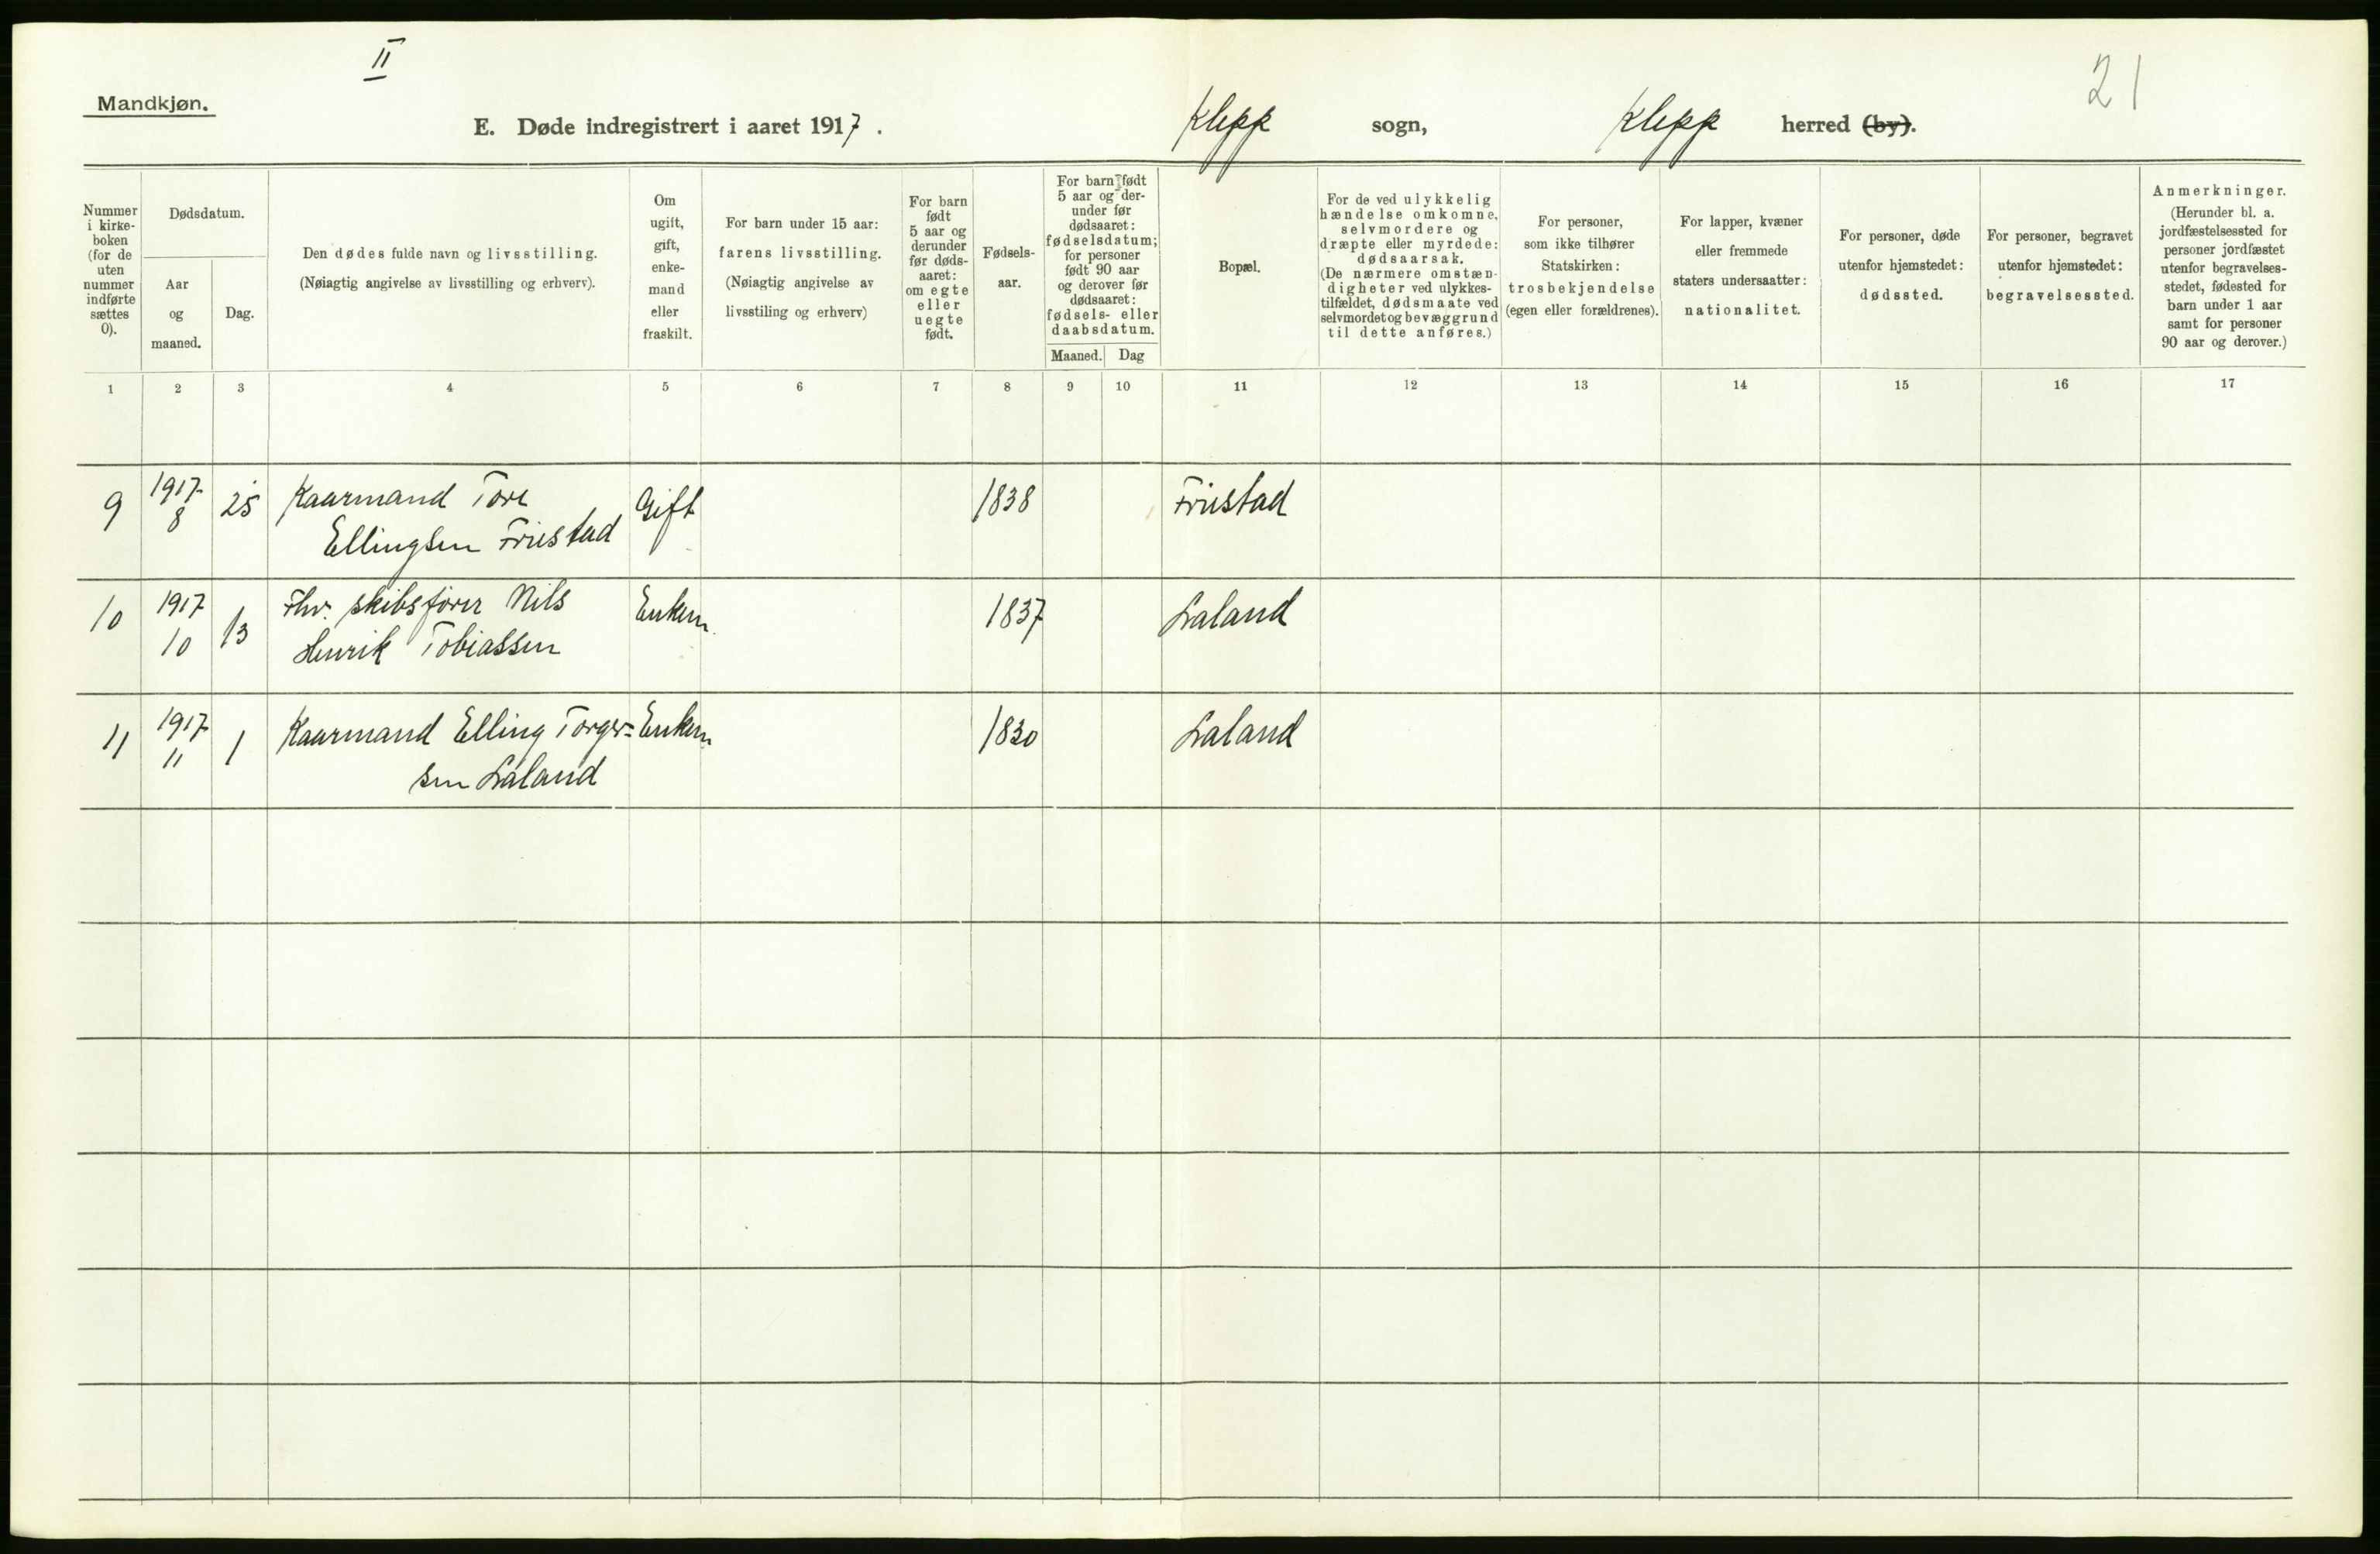 II
21
Mandkjøn.
E. Døde indregistrert i aaret 1917.
Klepp sogn, Klepp herred (by).
Nummer
i kirke-
boken
(for de
uten
nummer
indførte
sættes
0).
Dødsdatum.
Aar
og
maaned.
Dag.
Den dødes fulde navn og livsstilling.
(Nøiagtig angivelse av livsstilling og erhverv).
Om
ugift,
gift,
enke-
mand
eller
fraskilt.
For barn under 15 aar:
farens livsstilling.
(Nøiagtig angivelse av
livsstiling og erhverv)
For barn
født
5 aar og
derunder
før døds-
aaret:
om egte
eller
uegte
født.
Fødsels-
aar.
For barn født
5 aar og der-
under før
dødsaaret:
fødselsdatum;
for personer
født 90 aar
og derover før
dødsaaret:
fødsels- eller
daabsdatum.
Maaned. Dag
Bopæl.
For de ved ulykkelig
hændelse omkomne,
selvmordere og
dræpte eller myrdede:
dødsaarsak.
(De nærmere omstæn-
digheter ved ulykkes-
tilfældet, dødsmaate ved
selvmordet og bevæggrund
til dette anføres.)
For personer,
som ikke tilhører
Statskirken:
trosbekjendelse
(egen eller forældrenes).
For lapper, kvæner
eller fremmede
staters undersaatter:
nationalitet.
For personer, døde
utenfor hjemstedet:
dødssted.
For personer, begravet
utenfor hjemstedet:
begravelsessted.
Anmerkninger.
(Herunder bl. a.
jordfæstelsessted for
personer jordfæstet
utenfor begravelses-
stedet, fødested for
barn under 1 aar
samt for personer
90 aar og derover.)
1 2 3 4 5 6 7 8 9 10 11 12 13 14 15 16 17
9 1917 25 Kaarmand Tore Gift 1838 Friestad
8 Ellingsen Friestad
10 1917 13 Fhv. skibsfører Nils Enkem. 1837 Laland
10 Henrik Tobiassen
11 1917 1 Kaarmand Elling Torger= Enkem. 1830 Laland
11 sen Laland